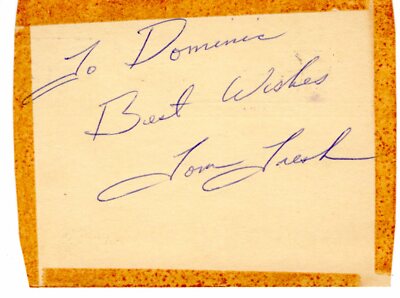 To Dominic
Best Wishes
Tom Tresh